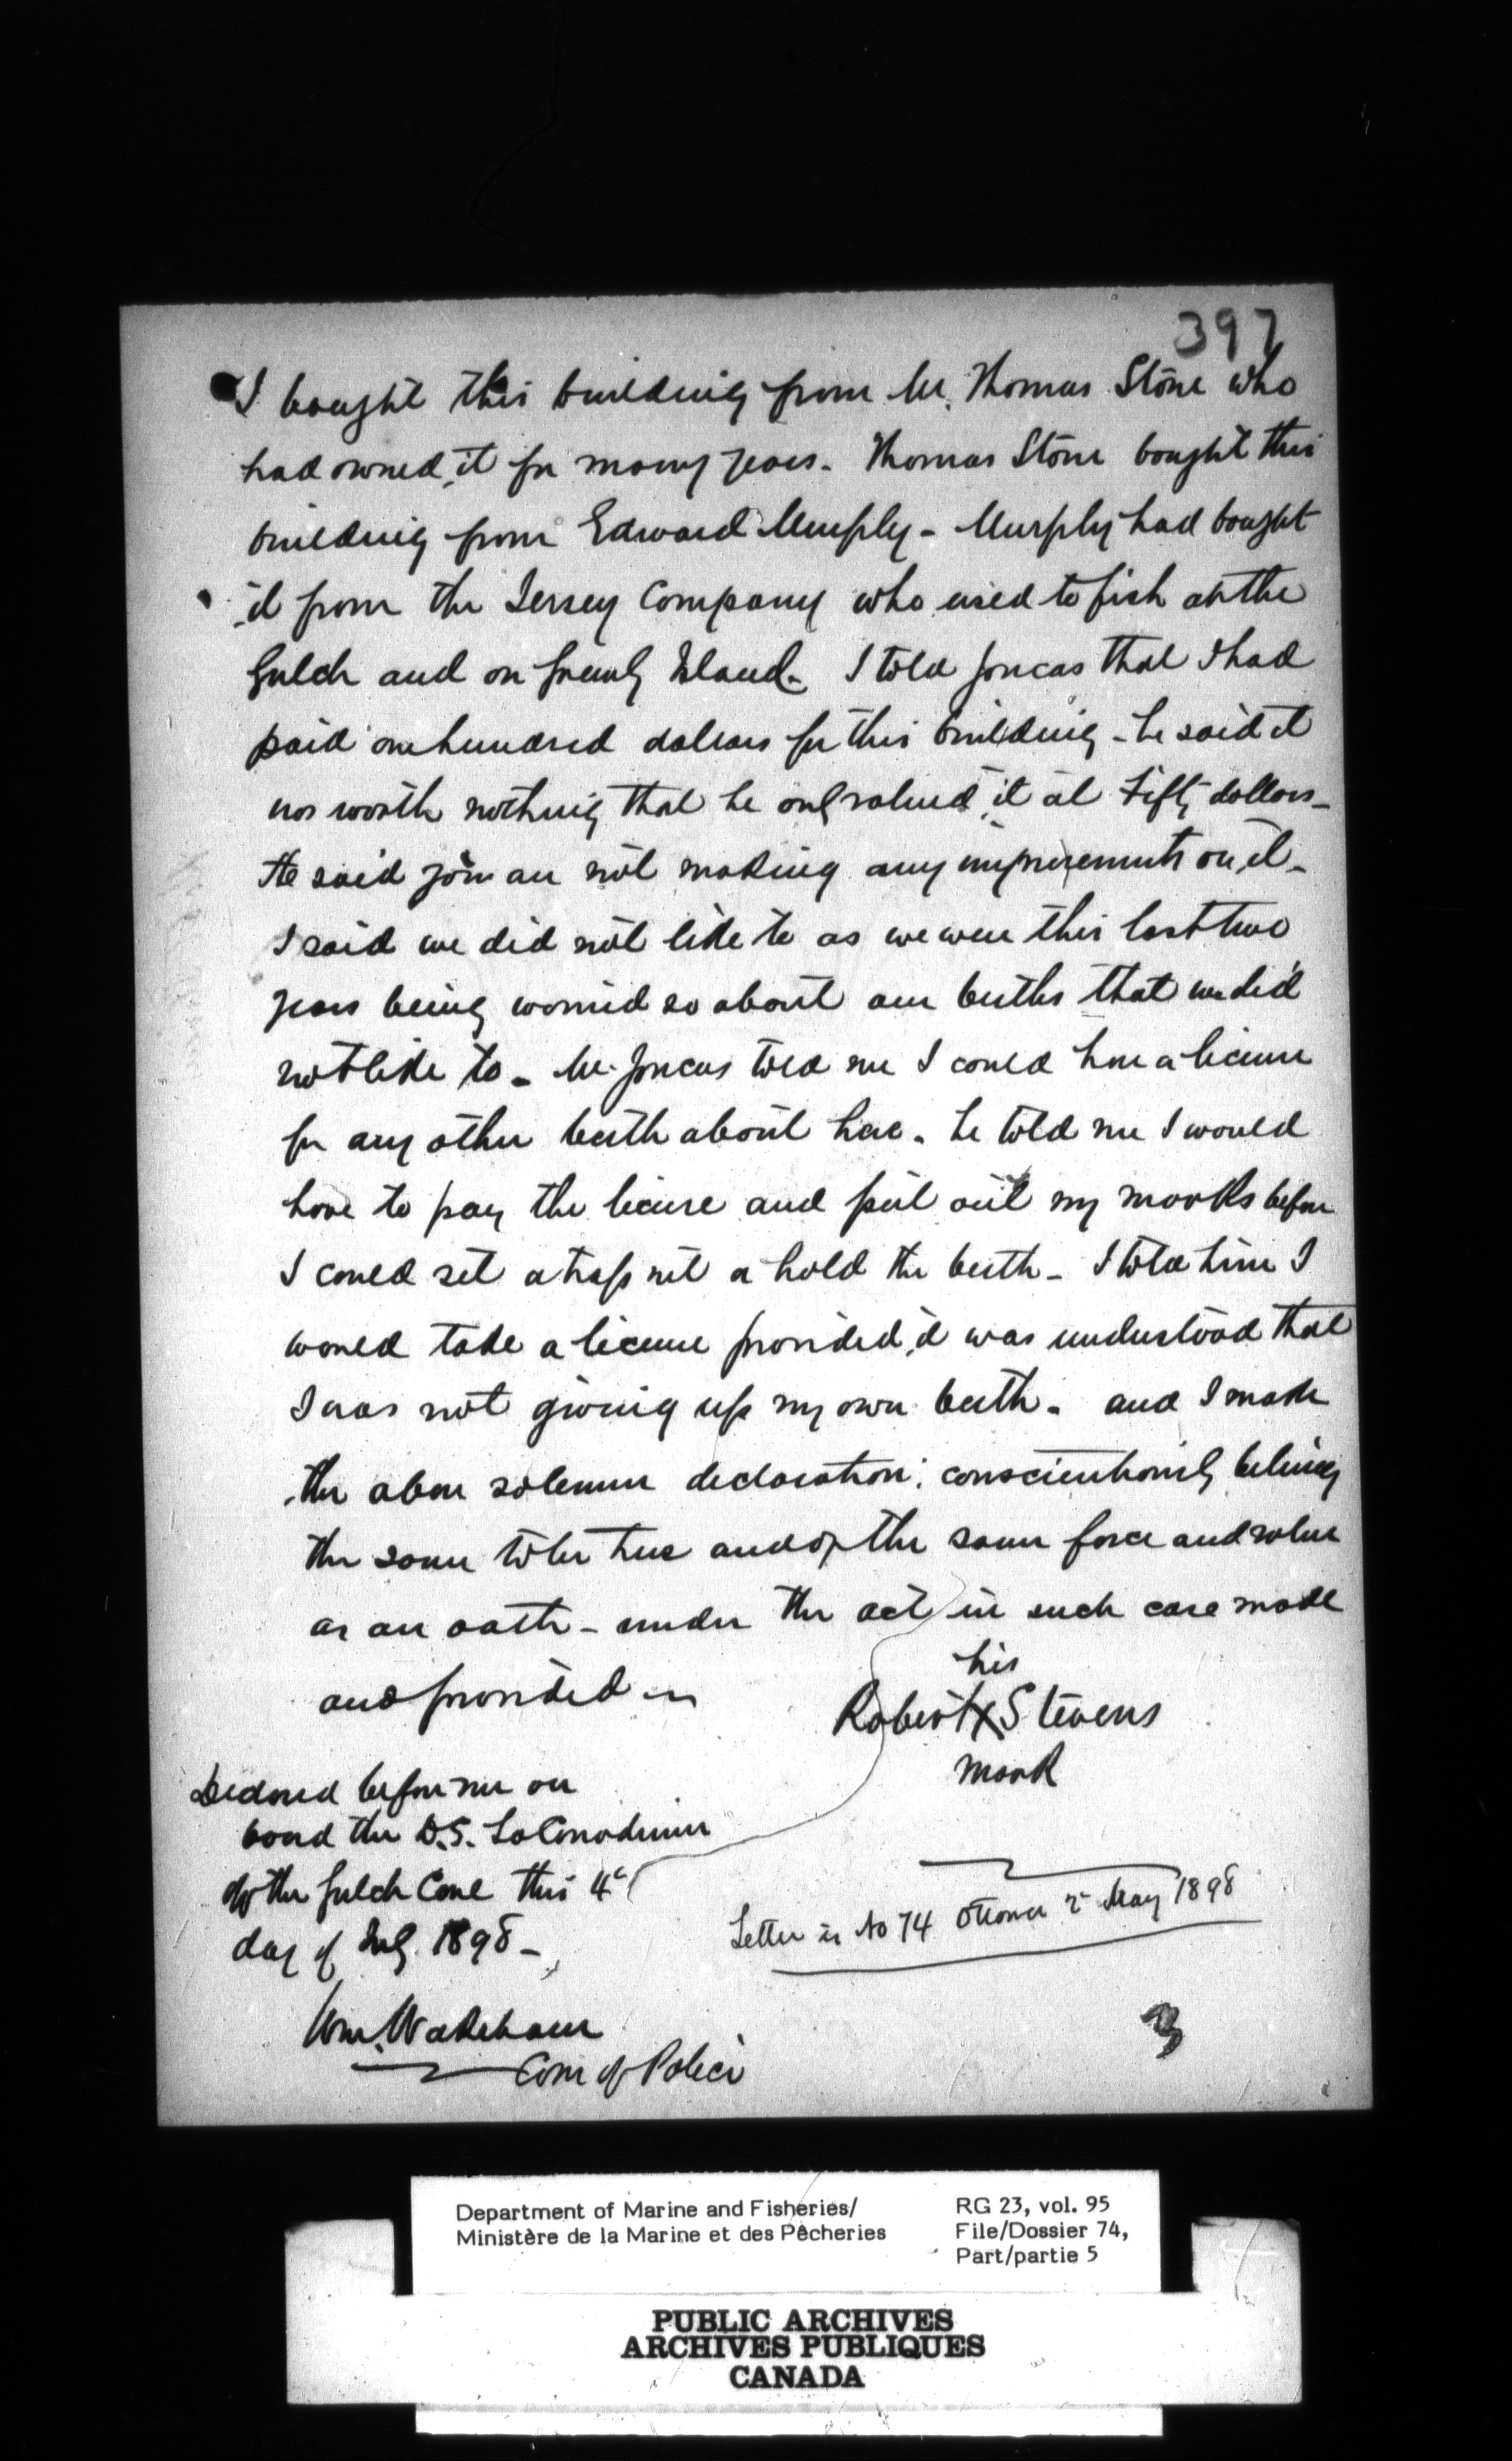 397
I bought this building from Mr. Thomas Stone who
had owned it for many years. Thomas Stone bought this
building from Edward Murphy - Murphy had bought
it from the Jersey Company who used to fish at the
Gulch and on Greenly Island. I told Joncas that I had
paid one hundred dollars for this building - he said it
was worth nothing that he only valued it at Fifty dollars -
He said you are not making any improvements on it -
I said we did not like to as we were this last two
years being worried so about our berths that we did
not like to - Mr. Joncas told me I could have a license
for any other berth about here. he told me I would
have to pay the license and put out my marks before
I could set a trap net or hold the berth - I told him I
would take a license provided it was understood that
I was not giving up my own berth. and I make
the above solemn declaration; conscientiously believing
the same to be true and of the same force and value
as an oath - under the act in such case made
and provided -
his
Robert X Stevens
mark
Declared before me on
board the D.S. La Canadienne
of the Gulch Cove this 4th
day of July. 1898 -
Letter in No 74 Ottawa 2 May 1898
Wm. Wakeham
Com of Police
3
Department of Marine and Fisheries/
Ministère de la Marine et des Pêcheries
RG 23, vol. 95
File/Dossier 74,
Part/partie 5
PUBLIC ARCHIVES
ARCHIVES PUBLIQUES
CANADA